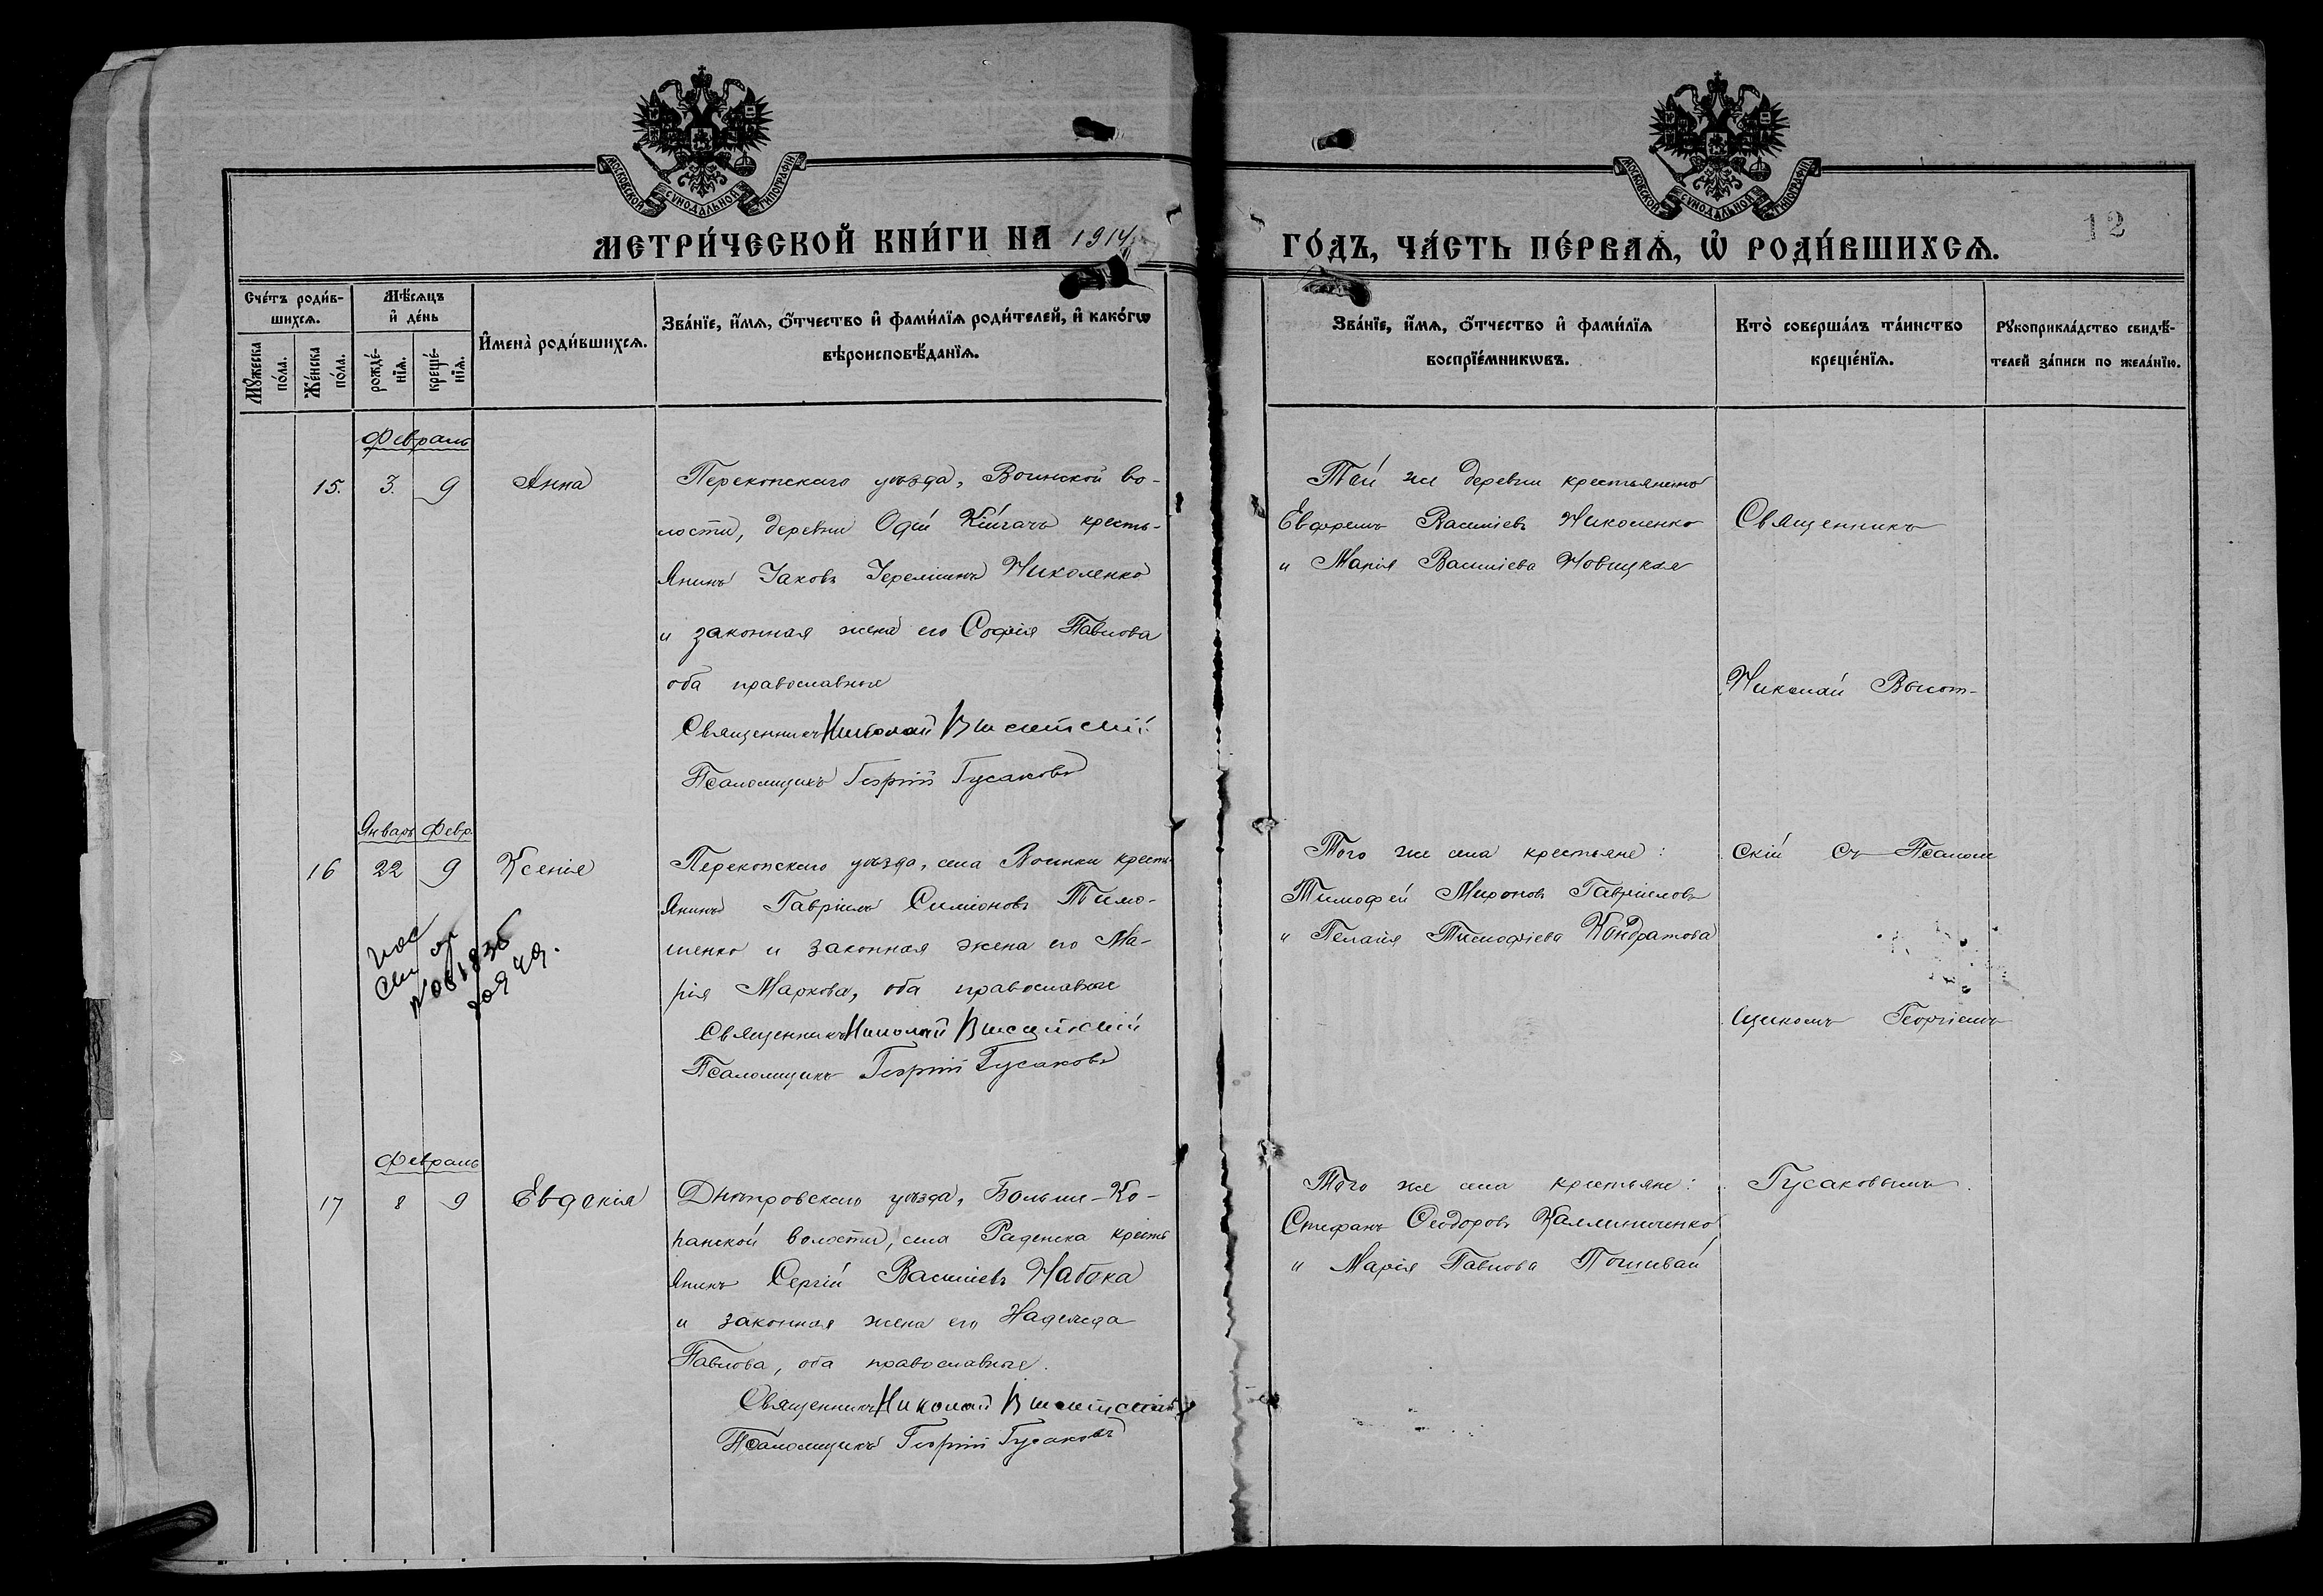 МОСКОВСКОЙ СѴНОДАЛЬНОЙ ТИПОГРАФІИ
МОСКОВСКОЙ СѴНОДАЛЬНОЙ ТИПОГРАФІИ
МЕТРИ́ЧЕСКОЙ КНИ́ГИ НА 1914
ГО́ДЪ, ЧА́СТЬ ПЕ́РВАѦ, Ѡ҆ РОДИ́ВШИХСѦ.
12
Сче́тъ роди́в-
шихсѧ.
Мѣ́сѧцъ
и҆ де́нь
Мꙋ́жеска
по́ла.
Же́нска
по́ла.
рожде́-
нїѧ.
креще́-
нїѧ.
И҆мена̀ роди́вшихсѧ.
Зва́нїе, и҆́мѧ, ѻ҆́тчество и҆ фами́лїѧ роди́телей, и҆ како́гѡ
вѣроисповѣ́данїѧ.
Зва́нїе, и҆́мѧ, ѻ҆́тчество и҆ фами́лїѧ
воспрїе́мникѡвъ.
Кто̀ соверша́лъ та́инство
креще́нїѧ.
Рꙋкоприкла́дство свидѣ́-
телей за́писи по жела́нїю.
Февраль
15. 3. 9 Анна
Перекопскаго уѣзда, Воинской во-
лости, деревни Одій Кійгачъ кресть-
янинъ Іаковъ Іереміинъ Николенко
и законная жена его Софія Павлова
оба православные
Священникъ Николай Высотскій
Псаломщикъ Георгій Гусаковъ
Той же деревни крестьянинъ
Евфремъ Василіевъ Николенко
и Марія Василіева Новицкая
Священникъ
Николай Высот-
Январь Февр.
16 22 9 Ксенія
Перекопскаго уѣзда, села Воинки кресть-
янинъ Гавріилъ Симіоновъ Тимо-
шенко и законная жена его Ма-
рія Маркова, оба православные
Священникъ Николай Высотскій
Псаломщикъ Георгій Гусаковъ
Того же села крестьяне:
Тимофей Мироновъ Гавріиловъ
и Пелагія Тимофіева Кондратова
скій съ Псалом
щикомъ Георгіемъ
Февраль
17 8 9 Евдокія
Днѣпровскаго уѣзда, Больше-Ко-
панской волости, села Раденска кресть
янинъ Сергій Василіевъ Набока
и законная жена его Надежда
Павлова, оба православные.
Священникъ Николай Высотскій
Псаломщикъ Георгій Гусаковъ
Того же села крестьяне:
Стефанъ Ѳеодоровъ Каллиниченко
и Марія Павлова Пошивай
Гусаковымъ.